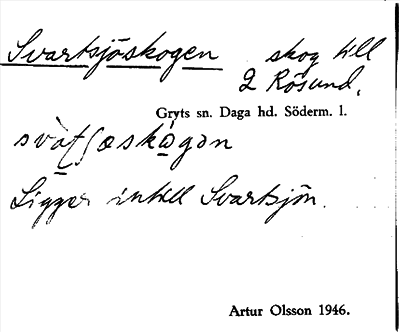 Svartsjöskogen skog till
2 Rösund.
Gryts sn. Daga hd. Söderm. l.
svàťʃœskɷ́gən
Ligger intill Svartsjön.
Artur Olsson 1946.